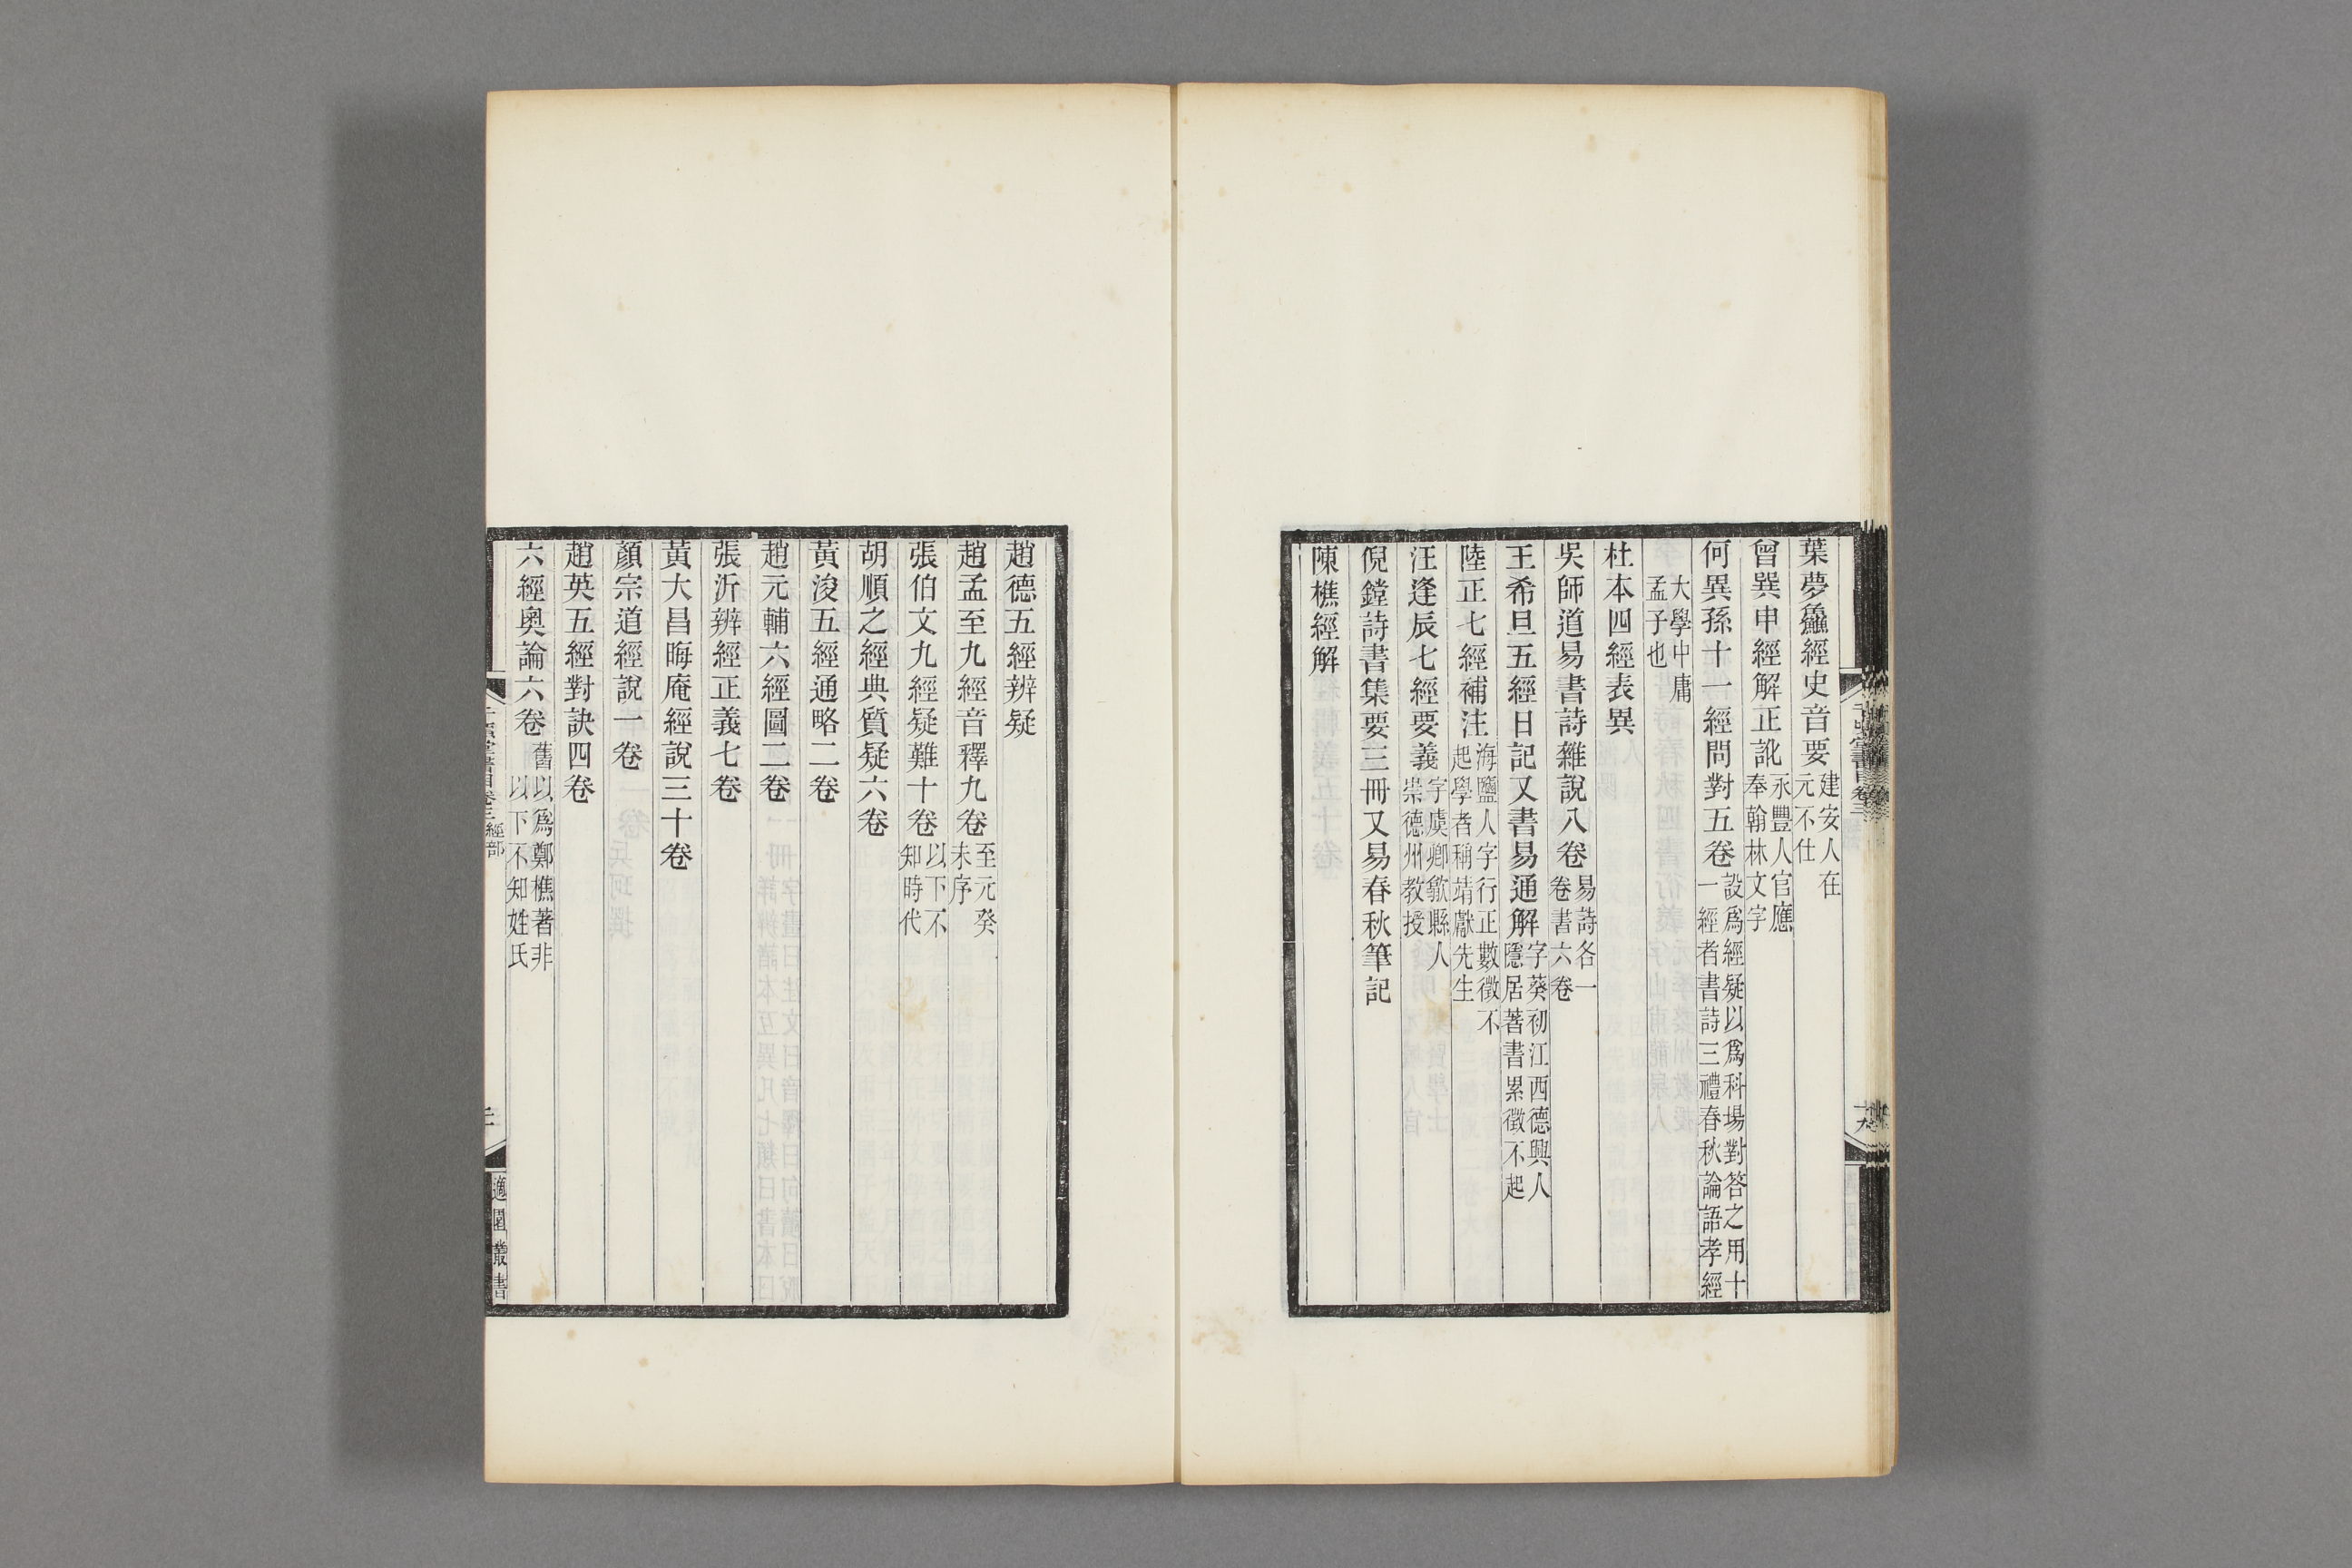 葉夢鱻經史音要建安人在元不仕
曾巽申經解正訛永豐人官應奉翰林文字
何異孫十一經問對五卷設爲經疑以爲科場對答之用十一經者書詩三禮春秋論語孝經
大學中庸孟子也
杜本四經表異
吳師道易書詩雜說八卷易詩各一卷書六卷
王希旦五經日記又書易通解字葵初江西德興人隱居著書累徵不起
陸正七經補注海鹽人字行正數徵不起學者稱靖獻先生
汪逢辰七經要義字虞卿歙縣人崇德州教授
倪鏜詩書集要三冊又易春秋筆記
陳樵經解
趙德五經辨疑
趙孟至九經音釋九卷至元癸未序
張伯文九經疑難十卷以下不知時代
胡順之經典質疑六卷
黃浚五經通略二卷
趙元輔六經圖二卷
張沂辨經正義七卷
黃大昌晦庵經說三十卷
顏宗道經說一卷
趙英五經對訣四卷
六經奧論六卷舊以爲鄭樵著非以下不知姓氏
適園叢書